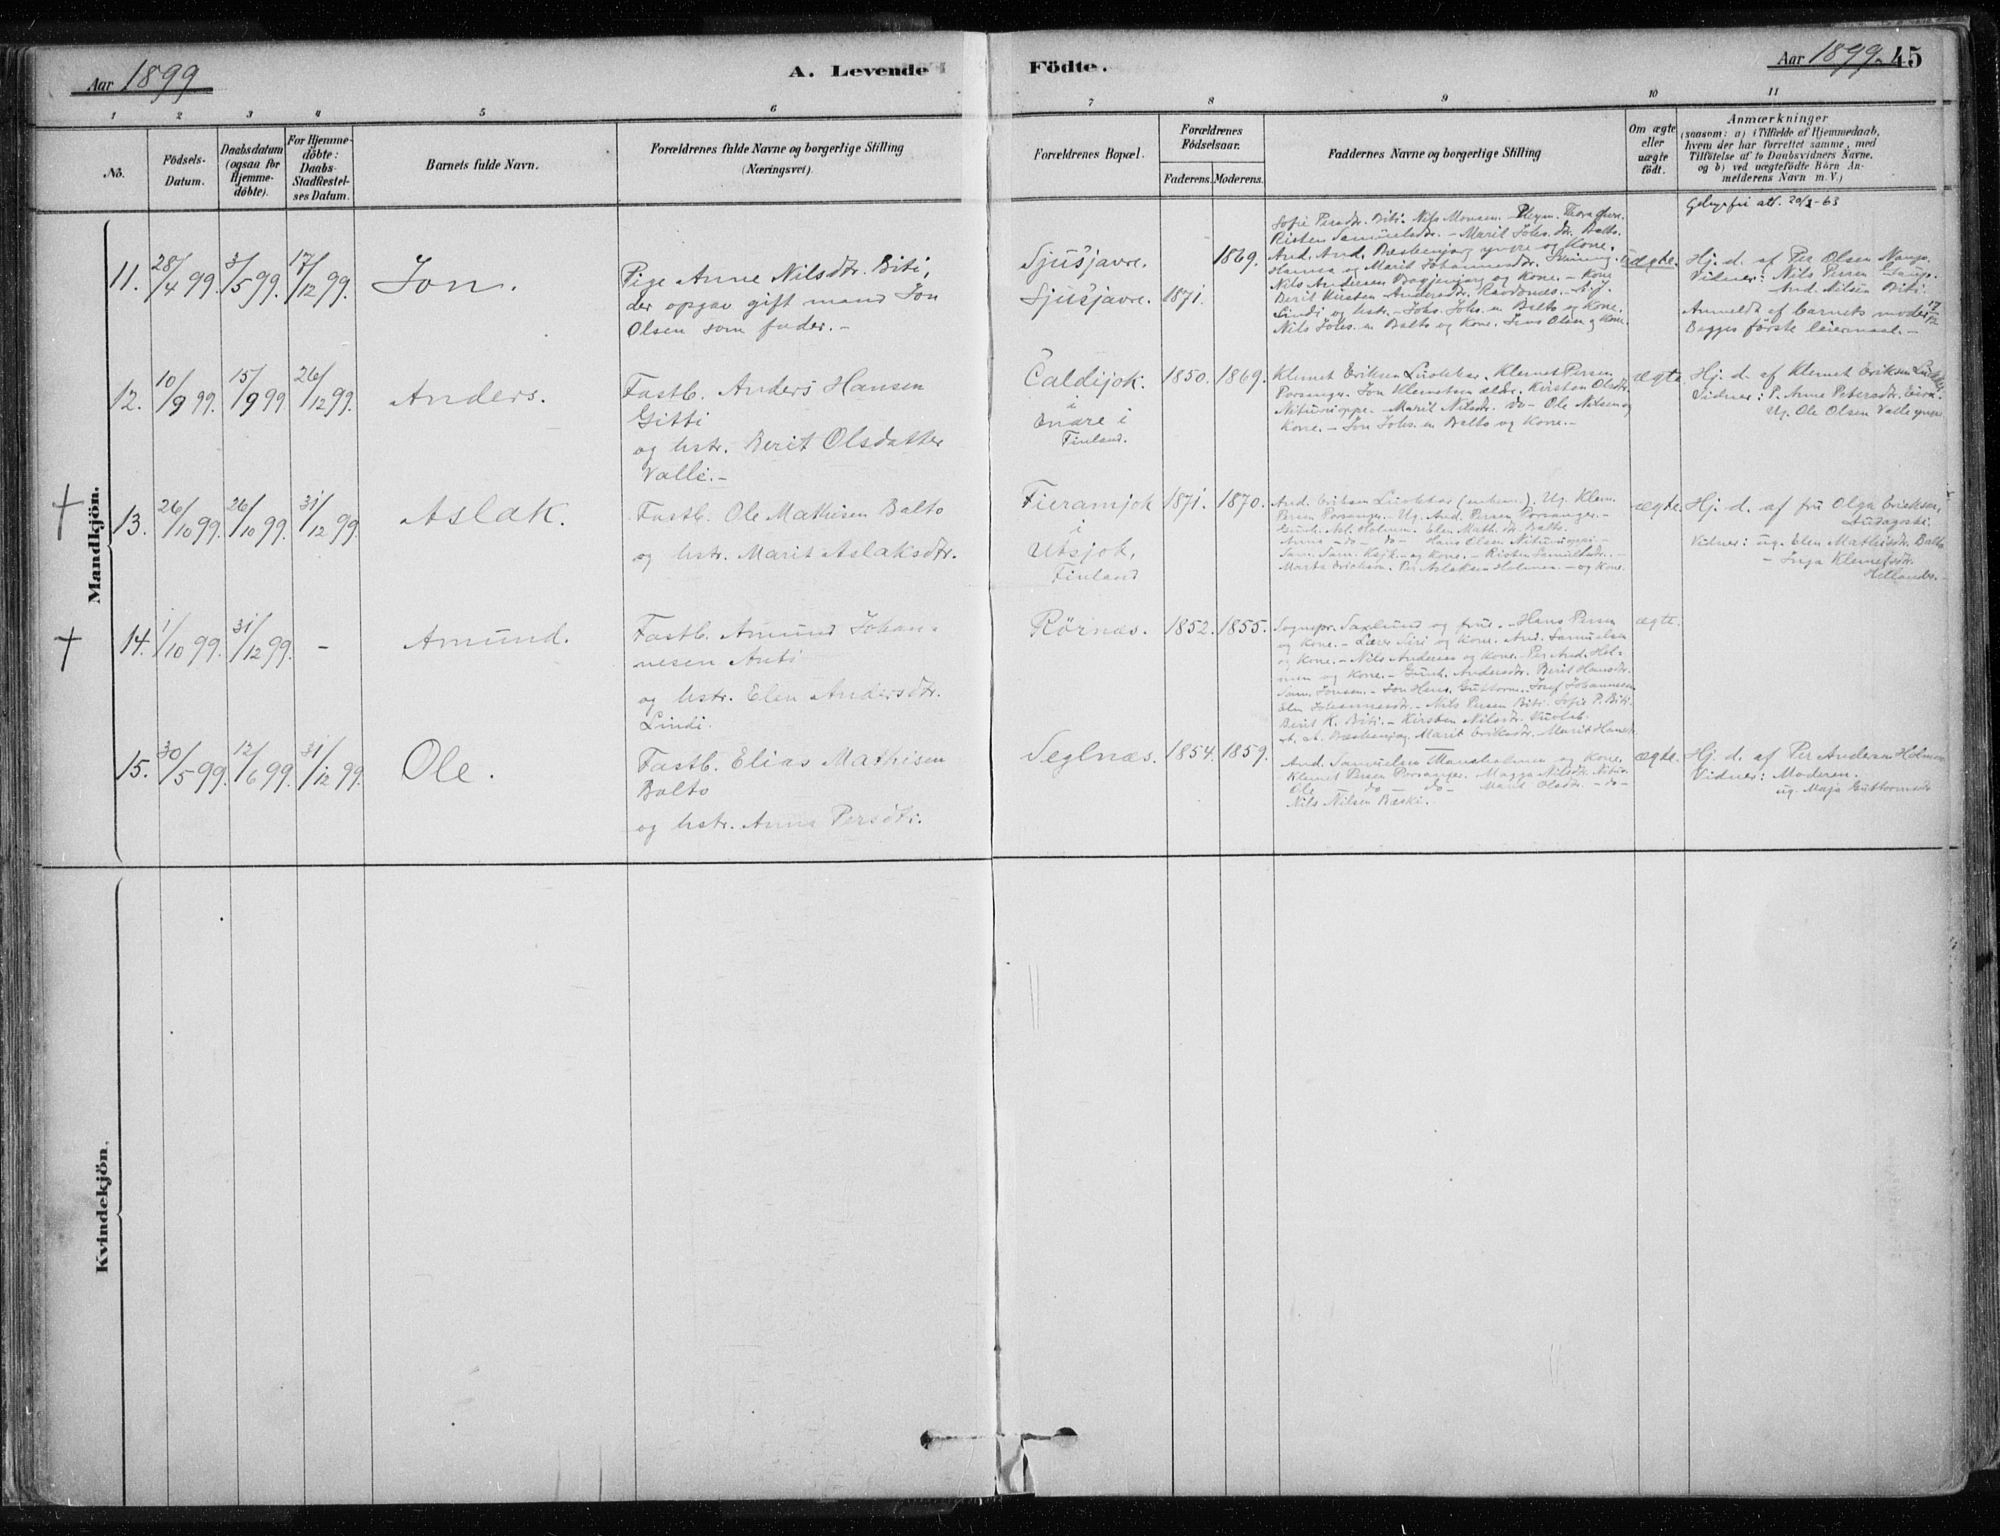 Aar 1899
A. Levende
Födte.
Aar 1899. 45
1 2 3 4 5 6 7 8 9 10 11
No.
Födsels-
Datum.
Daabsdatum
(ogsaa for
Hjemme-
döbte).
For Hjemme-
döbte:
Daabs-
Stadfæstel-
ses Datum.
Barnets fulde Navn.
Forældrenes fulde Navne og borgerlige Stilling
(Næringsvei).
Forældrenes Bopæl.
Forældrenes
Födselsaar.
Faderens. Moderens.
Faddernes Navne og borgerlige Stilling
Om ægte
eller
uægte
födt.
Anmærkninger
(saasom: a) i Tilfælde af Hjemmedaab,
hvem der har forrettet samme, med
Tilföielse af to Daabsvidners Navne,
og b) ved uægtefödte Börn An-
melderens Navn m. V.)
Mandkjön.
11. 28/4 99. 3/5 99. 17/12 99.
Jon.
Pige Anne Nilsdtr. Biti,
der opgav gift mand Jon
Olsen som fader. -
Sjusjavre.
Sjusjavre.
1871.
1869.
Sofie Persdtr. Biti. Nils Monsen
Risten Samuelsdr. - Marit Johs. dr. Balto.
And. And. Bæskenjarg yngre og Kone.
Hanna og Marit Johannesdr.
Nils Andersen og Kone. - Kone
Berit Kirsten Andersdr. Ravdonæs. - A. J.
Lindi og hstr. - Johs. Johs. en Balto og Kone.
Nils Johs. en Balto og Kone. Jens Olsen og Kone.
uægte.
att. 20/2-63
Hj. d. af Per Olsen
Vidner: Nils Persen Gaup.
And. Nilsen Biti.
Anmeldt af barnets moder 17/12
Begges förste leiermaal. -
12. 10/9 99. 15/9 99 26/12 99.
Anders.
Fastb. Anders Hansen
Gitti
og hstr. Berit Olsdatter
Valle. -
Caldijok.
i
Enare i
Finland.
1850. 1869.
Klemet Eriksen Livolebær. Klemet Persen
Porsanger. Jon Klemetsen eldr. Kirsten Olsdtr
Nitunioppe. - Marit Nilsdr. do - Ole Nilsen og
Kone. - Jon Johs. en Balto og Kone. -
ægte
Hj. d. af Klemet Eriksen
Vidner: P. Anne Petersdtr. Eira.
Ug. Ole Olsen Valle yngre
13. 26/10 99. 26/10 99. 31/12 99.
Aslak.
Fastb. Ole Mathisen Balto
og hstr. Marit Aslaksdtr.
Fieramjok
i
Utsjok,
Finland
1871. 1870.
And. Eriksen Livolebær Ug. Klem.
Persen Porsanger. Ug. And. Persen Porsanger. -
Gunh. Asl. Holmen. Elen Math. dr. Balto.
Anna - do - do - Hans Olsen
Sam. Sam. og Kone. - Risten Samuelsdr. -
Marta Erickson. Per Aslaksen Holmen. - og Kone.
ægte.
Hj. d. af fru Olga Ericksen,
Vidner: ug. Elen Mathisdr. Balto
- Inga Klemetsdr.
14. 1/10 99. 31/12 99. -
Amund.
Fastb. Amund Johan-
nesen Anti
og hstr. Elen Andersdtr.
Lindi.
Rörnæs.
1852. 1855.
Sognepr. Saxlund og frue. - Hans Persen
og Kone. - Lærer Siri og Kone. And. Samuelsen
og Kone. - Nils Andersen og Kone. - Per And. Hol-
men og Kone. - Gunh. Andersdtr. Berit Hansdtr.
Sam. Jonsen. - Jon Hans. Guttorm. - Josef Johannesen
Elen Johannesdr. - Nils Persen Biti. Sofie P. Biti.
Berit K. Biti. - Kirsten Nilsdr.
A. A. Bæskenjarg Marit Eriksdr. - Marit
ægte.
15. 30/5 99. 12/6 99. 31/12 99.
Ole.
Fastb. Elias Mathisen
Balto
og hstr. Anna Persdtr.
Seglnæs.
1854. 1859.
And. Samuelsen og Kone.
Klemet Persen Porsanger. Magga Nilsdtr.
Ole do do - Marit Olsdtr. - do -
Nils Nilsen Bæski.
ægte.
Hj. d. af Per Andersen Holmen
Vidner: Moderen.
ug. Maja Guttormsdr
Kvindekjön.